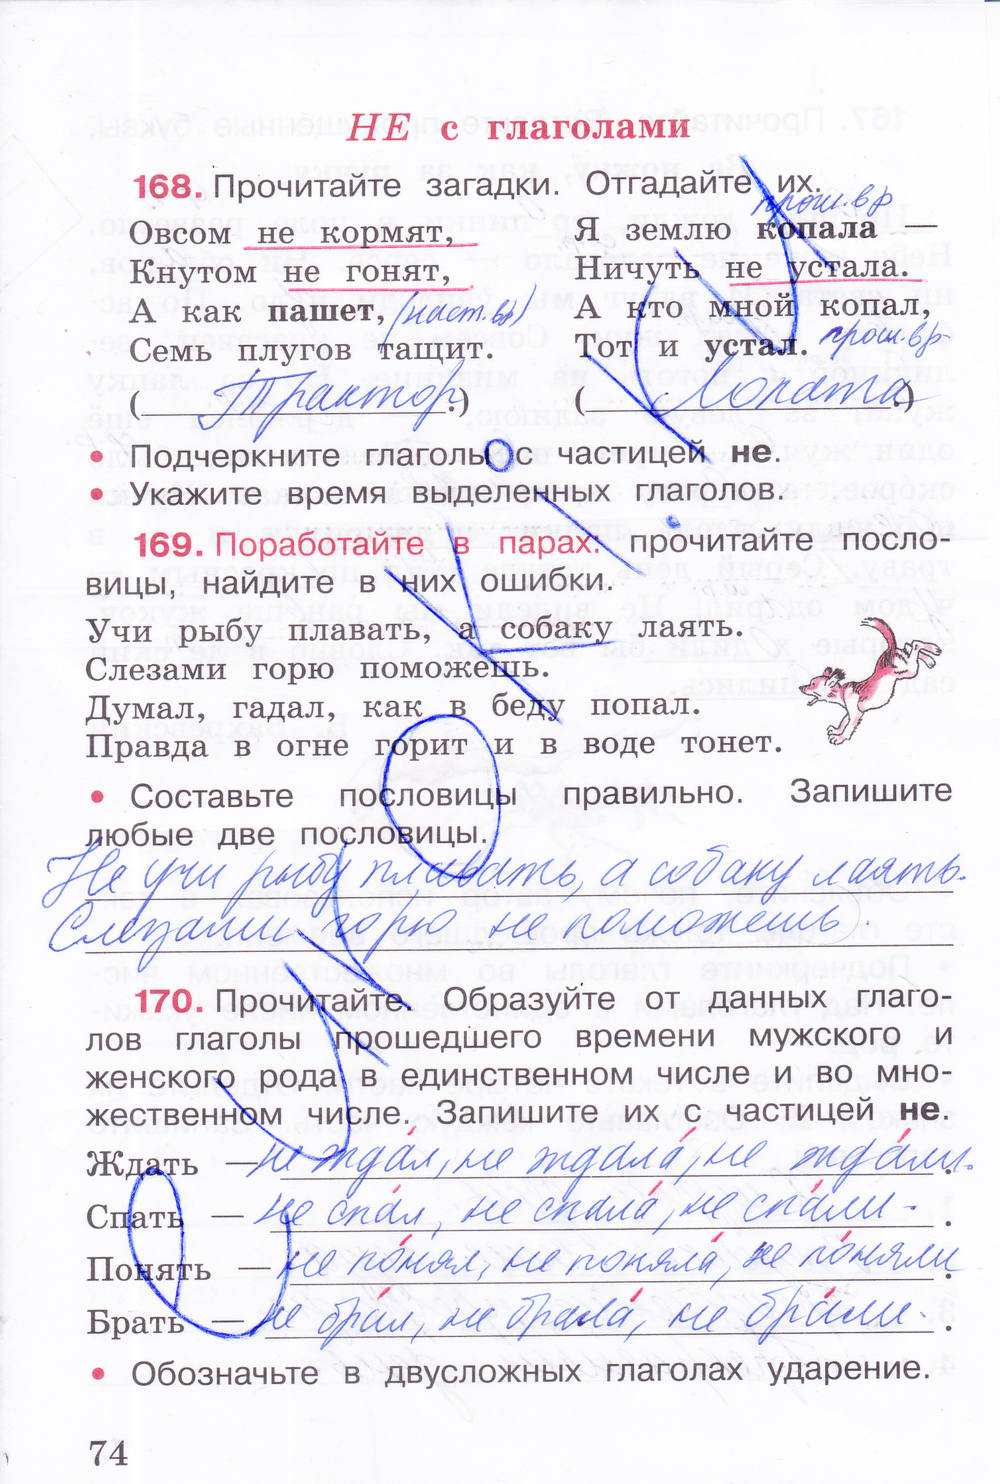 НЕ с глаголами
168. Прочитайте загадки. Отгадайте их.
Овсом не кормят,
Кнутом не гонят,
А как пашет, (наст.вр)
Семь плугов тащит.
(Трактор.)
прош.вр
Я землю копала —
Ничуть не устала.
А кто мной копал,
Тот и устал. прош.вр.
(Лопата.)
• Подчеркните глаголы с частицей не.
• Укажите время выделенных глаголов.
169. Поработайте в парах: прочитайте посло-
вицы, найдите в них ошибки.
Учи рыбу плавать, а собаку лаять.
Слезами горю поможешь.
Думал, гадал, как в беду попал.
Правда в огне горит и в воде тонет.
• Составьте пословицы правильно. Запишите
любые две пословицы.
Не учи рыбу плавать, а собаку лаять.
Слезами горю не поможешь.
170. Прочитайте. Образуйте от данных глаго-
лов глаголы прошедшего времени мужского и
женского рода в единственном числе и во мно-
жественном числе. Запишите их с частицей не.
Ждать — не ждал, не ждала́, не жда́ли.
Спать — не спал, не спала́, не спа́ли.
Понять — не по́нял, не поняла́, не по́няли.
Брать — не брал, не брала́, не бра́ли.
• Обозначьте в двусложных глаголах ударение.
74